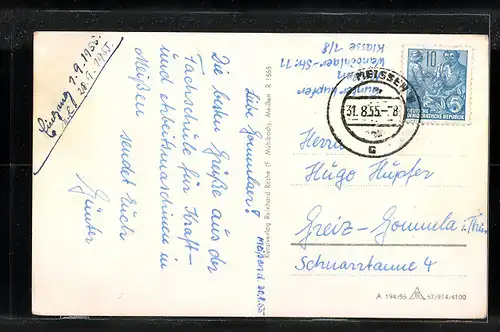 Eingang 1.9.1955.
20.9.1955.
Liebe Gommlaer!
Meißen, d. 30.8.55
Die besten Grüße aus der
Fachschule für Kraft-
und Arbeitsmaschinen in
Meißen
sendet Euch
Günter
Kunstverlag Reinhard Rothe Mühlbach, Meißen R 1555
Günter Hupfer
Meißen
Str. 11
Klasse 1/8
MEISSEN
31.8.55.-8
c
10
DEUTSCHE
DEMOKRATISCHE REPUBLIK
Herrn
Hugo Hupfer
Greiz-Gommla i. Thür.
Schwarztanne 4
A 194/55 57/974/4100